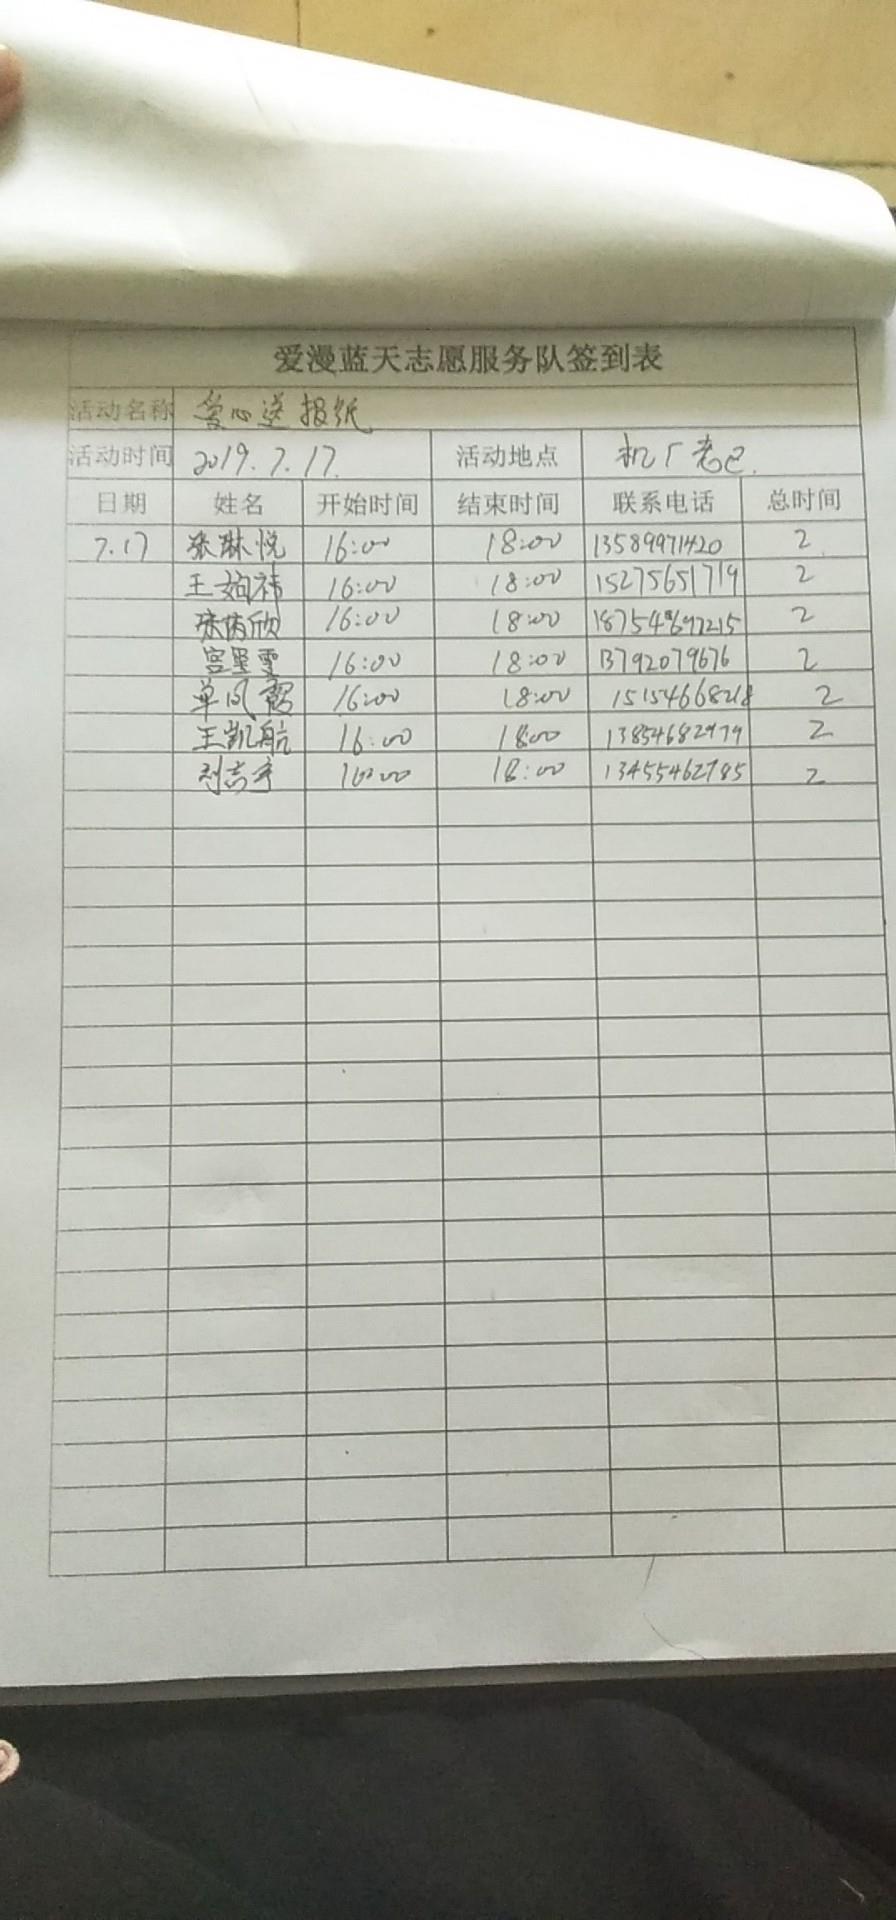 爱漫蓝天志愿服务队签到表
活动名称 爱心送报纸
活动时间 2019.7.17. 活动地点 机厂老区.
日期 姓名 开始时间 结束时间 联系电话 总时间
7.17 张琳悦 16:00 18:00 13589971420 2
王 16:00 18:00 15275651719 2
张茵欣 16:00 18:00 18754697215 2
宫墨雯 16:00 18:00 13792079676 2
单凤霞 16:00 18:00 15154668218 2
王凯航 16:00 18:00 13854682979 2
刘 16:00 18:00 13455462785 2